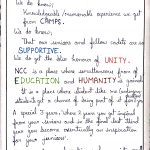 We do know,
Knowledgeable / memorable experience we get
from CAMPS.
We do know,
That our seniors and fellow cadets are so
SUPPORTIVE.
We do get the blue humour of UNITY.
NCC is a place where simultaneous from of
EDUCATION and HUMANITY is
It is a place where student like us
get a chance of being part of it
A special 3 years where 2 years we get inspired
from your seniors and in the third last
year you become automatically an inspiration
for your juniors.